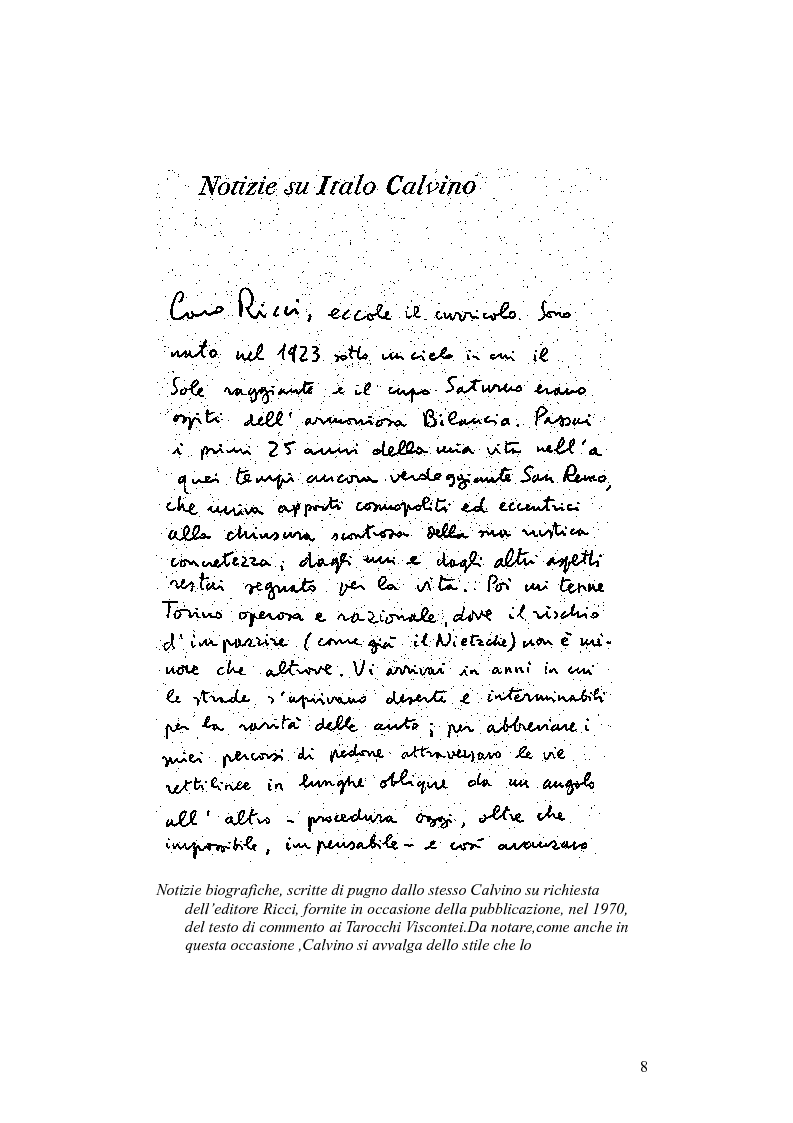 Notizie su Italo Calvino
Caro Ricci, eccole il curricolo. Sono
nato nel 1923 sotto un cielo in cui il
Sole raggiante e il cupo Saturno erano
ospiti dell'armoniosa Bilancia. Passai
i primi 25 anni della mia vita nell'a
quei tempi ancora verdeggiante San Remo,
che univa apporti cosmopoliti ed eccentrici
alla chiusura scontrosa della sua rustica
concretezza; dagli uni e dagli altri aspetti
restai segnato per la vita. Poi mi tenne
Torino operosa e razionale, dove il rischio
d'impazzire (come già il Nietzsche) non è mi-
nore che altrove. Vi arrivai in anni in cui
le strade s'aprivano deserte e interminabili
per la rarità delle auto; per abbreviare i
miei percorsi di pedone attraversavo le vie
rettilinee in lunghe oblique da un angolo
all'altro - procedura oggi, oltre che
impossibile, impensabile - e così avanzavo
Notizie biografiche, scritte di pugno dallo stesso Calvino su richiesta
dell'editore Ricci, fornite in occasione della pubblicazione, nel 1970,
del testo di commento ai Tarocchi Viscontei.Da notare,come anche in
questa occasione ,Calvino si avvalga dello stile che lo
8